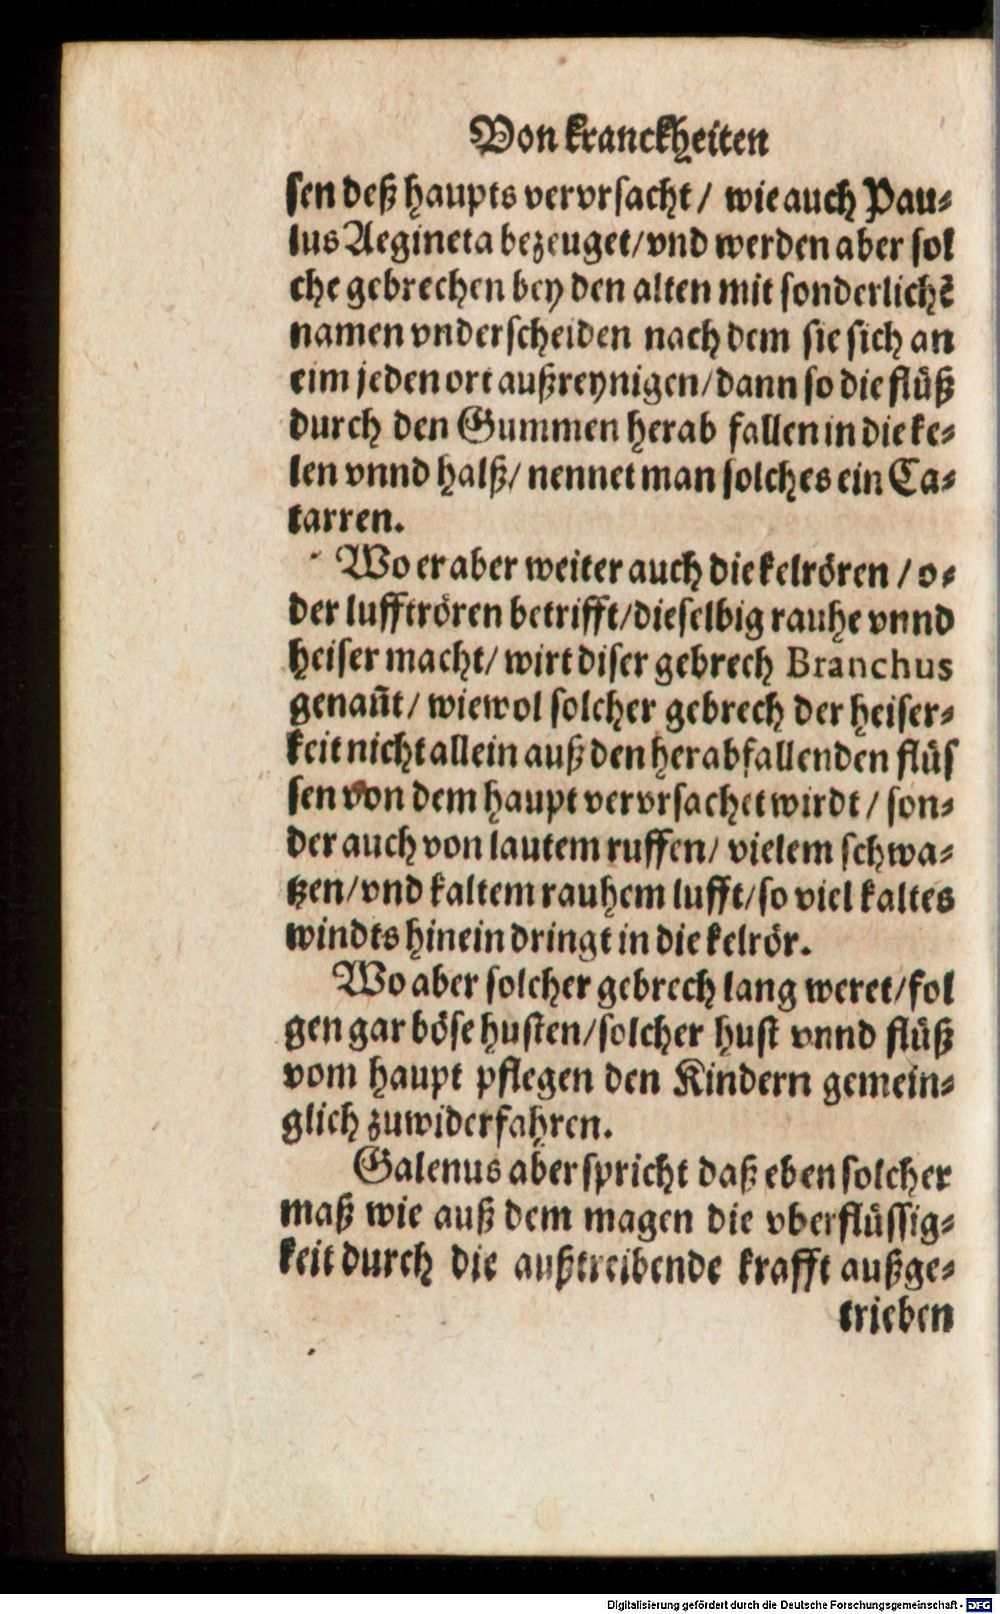 Von kranckheiten
sen deß haupts verursacht / wie auch Pau⸗
lus Aegineta bezeuget/vnd werden aber sol
che gebrechen bey den alten mit sonderlichẽ
namen vnderscheiden nach dem sie sich an
eim jeden ort außreynigen/dann so die flüß
durch den Gummen herab fallen in die ke⸗
len vnnd halß/ nennet man solches ein Ca⸗
tarren.
Wo er aber weiter auch die kelrören / o⸗
der lufftrören betrifft/dieselbig rauhe vnnd
heiser macht/ wirt diser gebrech Branchus
genañt/ wiewol solcher gebrech der heiser⸗
keit nicht allein auß den herabfallenden flüs
sen von dem haupt vervrsachet wirdt / son⸗
der auch von lautem ruffen/ vielem schwa⸗
tzen/vnd kaltem rauhem lufft/so viel kaltes
windts hinein dringt in die kelrör.
Wo aber solcher gebrech lang weret/fol
gen gar böse husten/solcher hust vnnd flüß
vom haupt pflegen den Kindern gemein⸗
glich zuwiderfahren.
Galenus aber spricht daß eben solcher
maß wie auß dem magen die vberflüssig⸗
keit durch die außtreibende krafft außge⸗
trieben
Digitalisierung gefördert durch die Deutsche Forschungsgemeinschaft - DFG